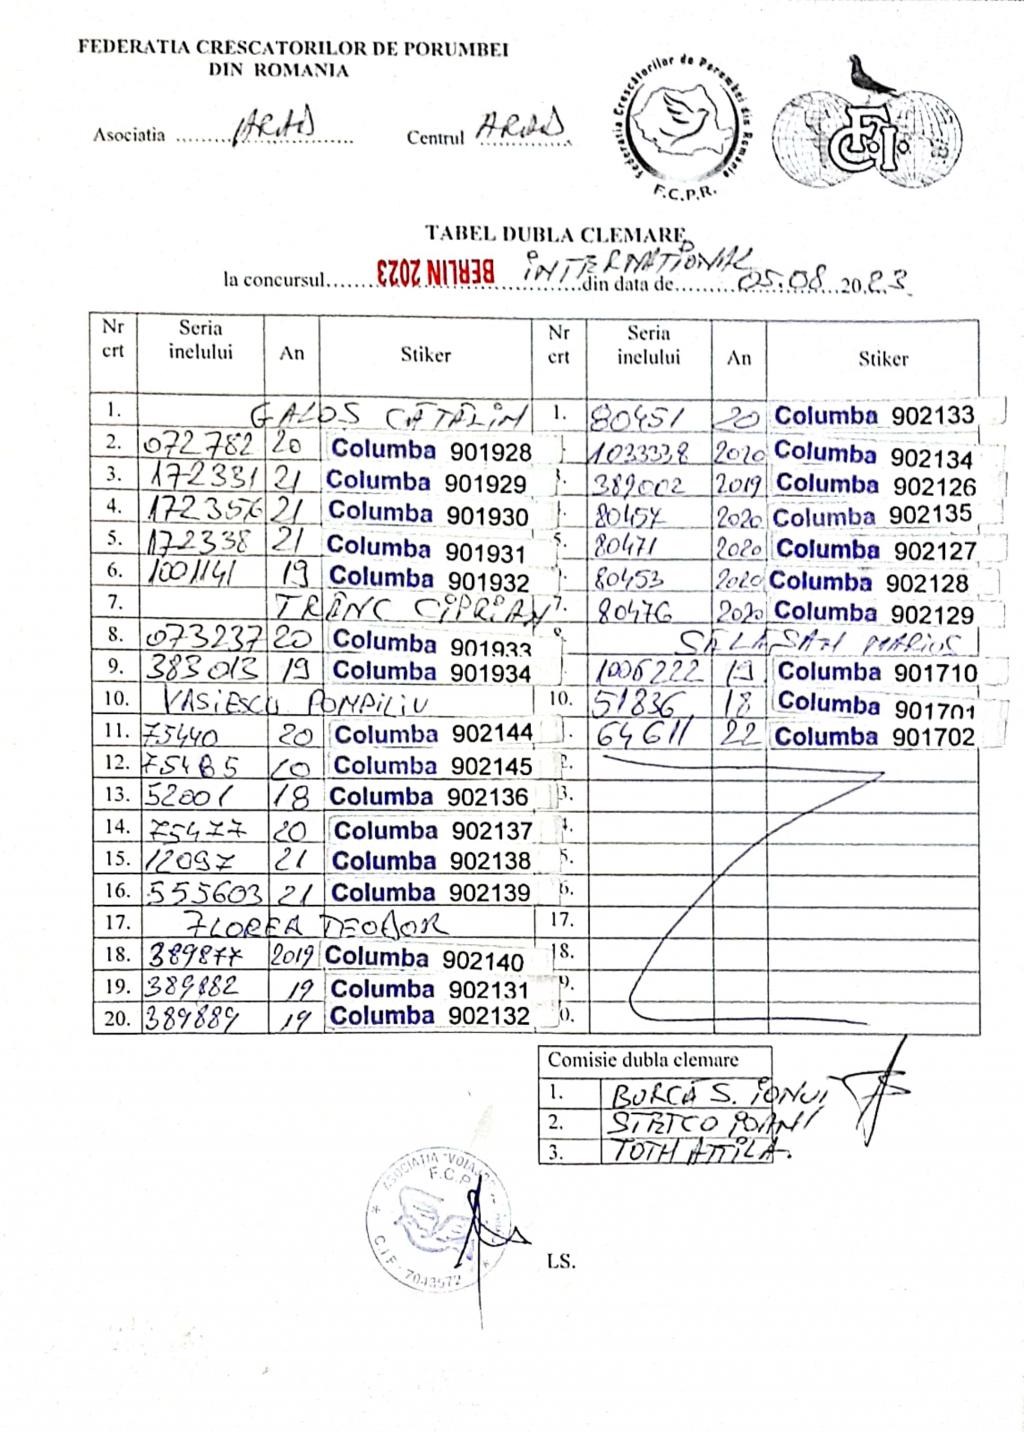 FEDERATIA CRESCATORILOR DE PORUMBEI
DIN ROMANIA
Asociatia ARAD Centrul ARAD
Federatia Crescătorilor de Porumbei din România
F.C.P.R.
FCI
TABEL DUBLA CLEMARE
la concursul BERLIN 2023 INTERNATIONAL din data de 05.08.2023
Nr crt Seria inelului An Stiker Nr crt Seria inelului An Stiker
1. GALOS CĂTĂLIN 1. 80451 20 Columba 902133
2. 072782 20 Columba 901928 1033338 2020 Columba 902134
3. 172331 21 Columba 901929 389002 2019 Columba 902126
4. 172356 21 Columba 901930 80457 2020 Columba 902135
5. 172338 21 Columba 901931 5. 80471 2020 Columba 902127
6. 1001141 19 Columba 901932 80453 2020 Columba 902128
7. TRÎNC CIPRIAN 7. 80476 2020 Columba 902129
8. 073237 20 Columba 901933 SĂLĂSAN MARIUS
9. 383013 19 Columba 901934 1006222 19 Columba 901710
10. VASIESCU POMPILIU 10. 51836 18 Columba 901701
11. 75440 20 Columba 902144 64611 22 Columba 901702
12. 75485 20 Columba 902145 2.
13. 52001 18 Columba 902136 3.
14. 75477 20 Columba 902137 4.
15. 12097 21 Columba 902138 5.
16. 555603 21 Columba 902139 6.
17. FLOREA TEODOR 17.
18. 389877 2019 Columba 902140 8.
19. 389882 19 Columba 902131 9.
20. 389889 19 Columba 902132 0.
Comisie dubla clemare
1. BURCĂ S. IONUȚ
2. IOAN
3. TOTH ATTILA.
ASOCIATIA
F.C.P.
C.I.F. 7043572
LS.